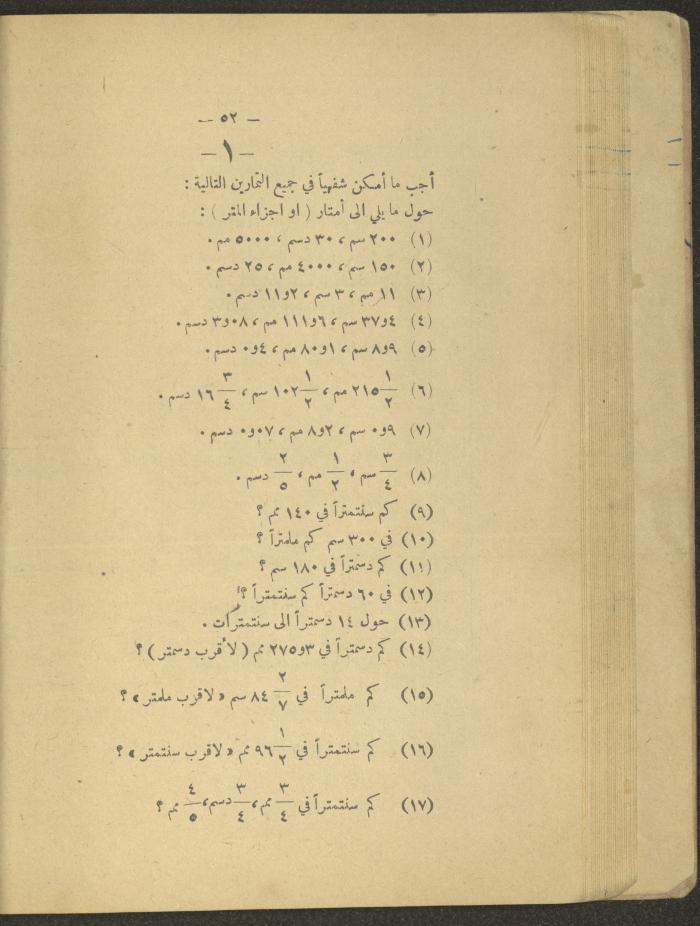 — ٥٢ —
— ١ —
أجب ما أمكن شفهياً في جميع التمارين التالية :
حول ما يلي الى أمتار ( او اجزاء المتر ) :
(١) ٢٠٠ سم ، ٣٠ دسم ، ٥٠٠٠ مم .
(٢) ١٥٠ سم ، ٤٠٠٠ مم ، ٢٥ دسم .
(٣) ١١ مم ، ٣ سم ، ٢و١١ دسم .
(٤) ٤و٣٧ سم ، ٦و١١١ مم ، ٠٨و٣ دسم .
(٥) ٩و٨ سم ، ١و٨٠ مم ، ٤و٠ دسم .
(٦) ١/٢ ٢١٥ مم ، ١/٢ ١٠٢ سم ، ٣/٤ ١٦ دسم .
(٧) ٩و٠ سم ، ٢و٨ مم ، ٠٧و٠ دسم .
(٨) ٣/٤ سم ، ١/٢ مم ، ٢/٥ دسم .
(٩) كم سنتمتراً في ١٤٠ مم ؟
(١٠) في ٣٠٠ سم كم ملمتراً ؟
(١١) كم دسمتراً في ١٨٠ سم ؟
(١٢) في ٦٠ دسمتراً كم سنتمتراً ؟
(١٣) حول ١٤ دسمتراً الى سنتمترات .
(١٤) كم دسمتراً في ٣و٢٧٥ مم ( لأقرب دسمتر ) ؟
(١٥) كم ملمتراً في ٢/٧ ٨٤ سم « لاقرب ملمتر » ؟
(١٦) كم سنتمتراً في ١/٢ ٩٦ مم « لاقرب سنتمتر » ؟
(١٧) كم سنتمتراً في ٣/٤ مم ، ٣/٤ دسم ، ٤/٥ مم ؟